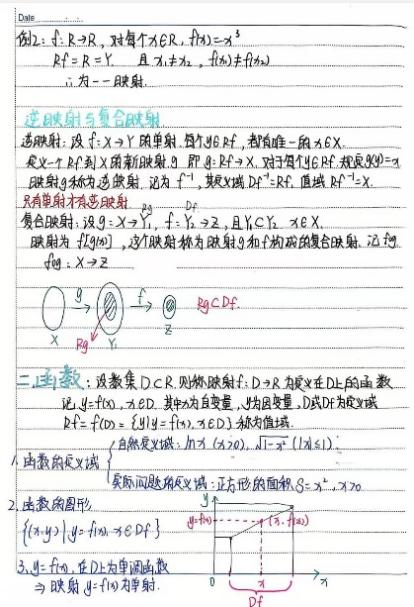 Date
例2: f: R→R, 对每个x∈R, f(x)=x³
Rf=R=Y. 且 x₁≠x₂, f(x₁)≠f(x₂)
∴为一一映射.
逆映射与复合映射
逆映射: 设 f: X→Y 的单射. 每个y∈Rf, 都有唯一的x∈X.
定义一个Rf到X的新映射g 即 g: Rf→X. 对于每个y∈Rf, 规定g(y)=x
映射g称为逆映射. 记为 f⁻¹, 其定义域 Df⁻¹=Rf. 值域 Rf⁻¹=X.
只有单射才有逆映射
Rg Df
复合映射: 设 g: X→Y₁, f: Y₂→Z, 且Y₁⊂Y₂ x∈X.
映射为 f[g(x)], 这个映射称为映射g和f构成的复合映射. 记 fog
fog: X→Z
g f Rg⊂Df.
X Rg Y₁ Z
二.函数: 设数集D⊂R. 则称映射f: D→R 为定义在D上的函数
记 y=f(x), x∈D. 其中x为自变量, y为因变量, D或Df为定义域
Rf=f(D)={y|y=f(x), x∈D} 称为值域.
自然定义域: lnx (x>0), √1-x² (|x|≤1);
1. 函数的定义域
实际问题的定义域: 正方形的面积 S=x², x>0
2. 函数的图形
{(x,y)|y=f(x), x∈Df}
y
y=f(x) (x, f(x))
3. y=f(x), 在D上为单调函数
⇒ 映射 y=f(x)为单射.
0 x x
Df